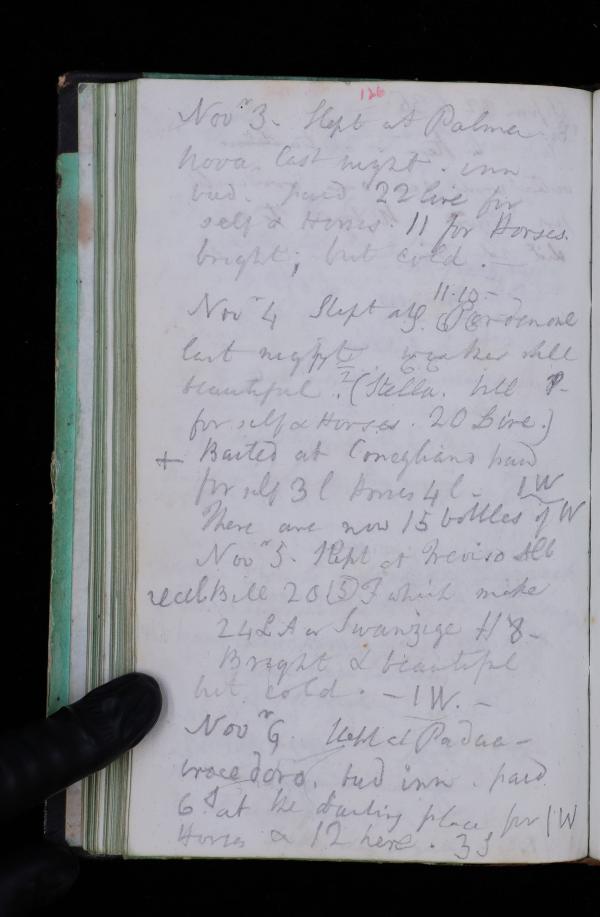 126
Novr 3. Slept at Palma
nova last night. inn
bad. paid 22 lire for
self & Horses. 11 for Horses.
bright; but cold. —
11.10 —
Novr 4 Slept at Pordenone
last night weather still
beautiful. (Stella. bill
for self & Horses. 20 Lire.)
+ Baited at Conegliano paid
for self 3 l Horses 4 l — 1 W
There are now 15 bottles of W
Novr 5. Slept at Treviso Alb
reale Bill 20 (5) F which make
24 L A or Swanzige H 8 —
Bright & beautiful
but cold. — 1 W. —
Novr 6 Slept at Padua —
croce doro. bad inn. paid
6 at the baiting place for 1 W
Horses & 12 here. 33